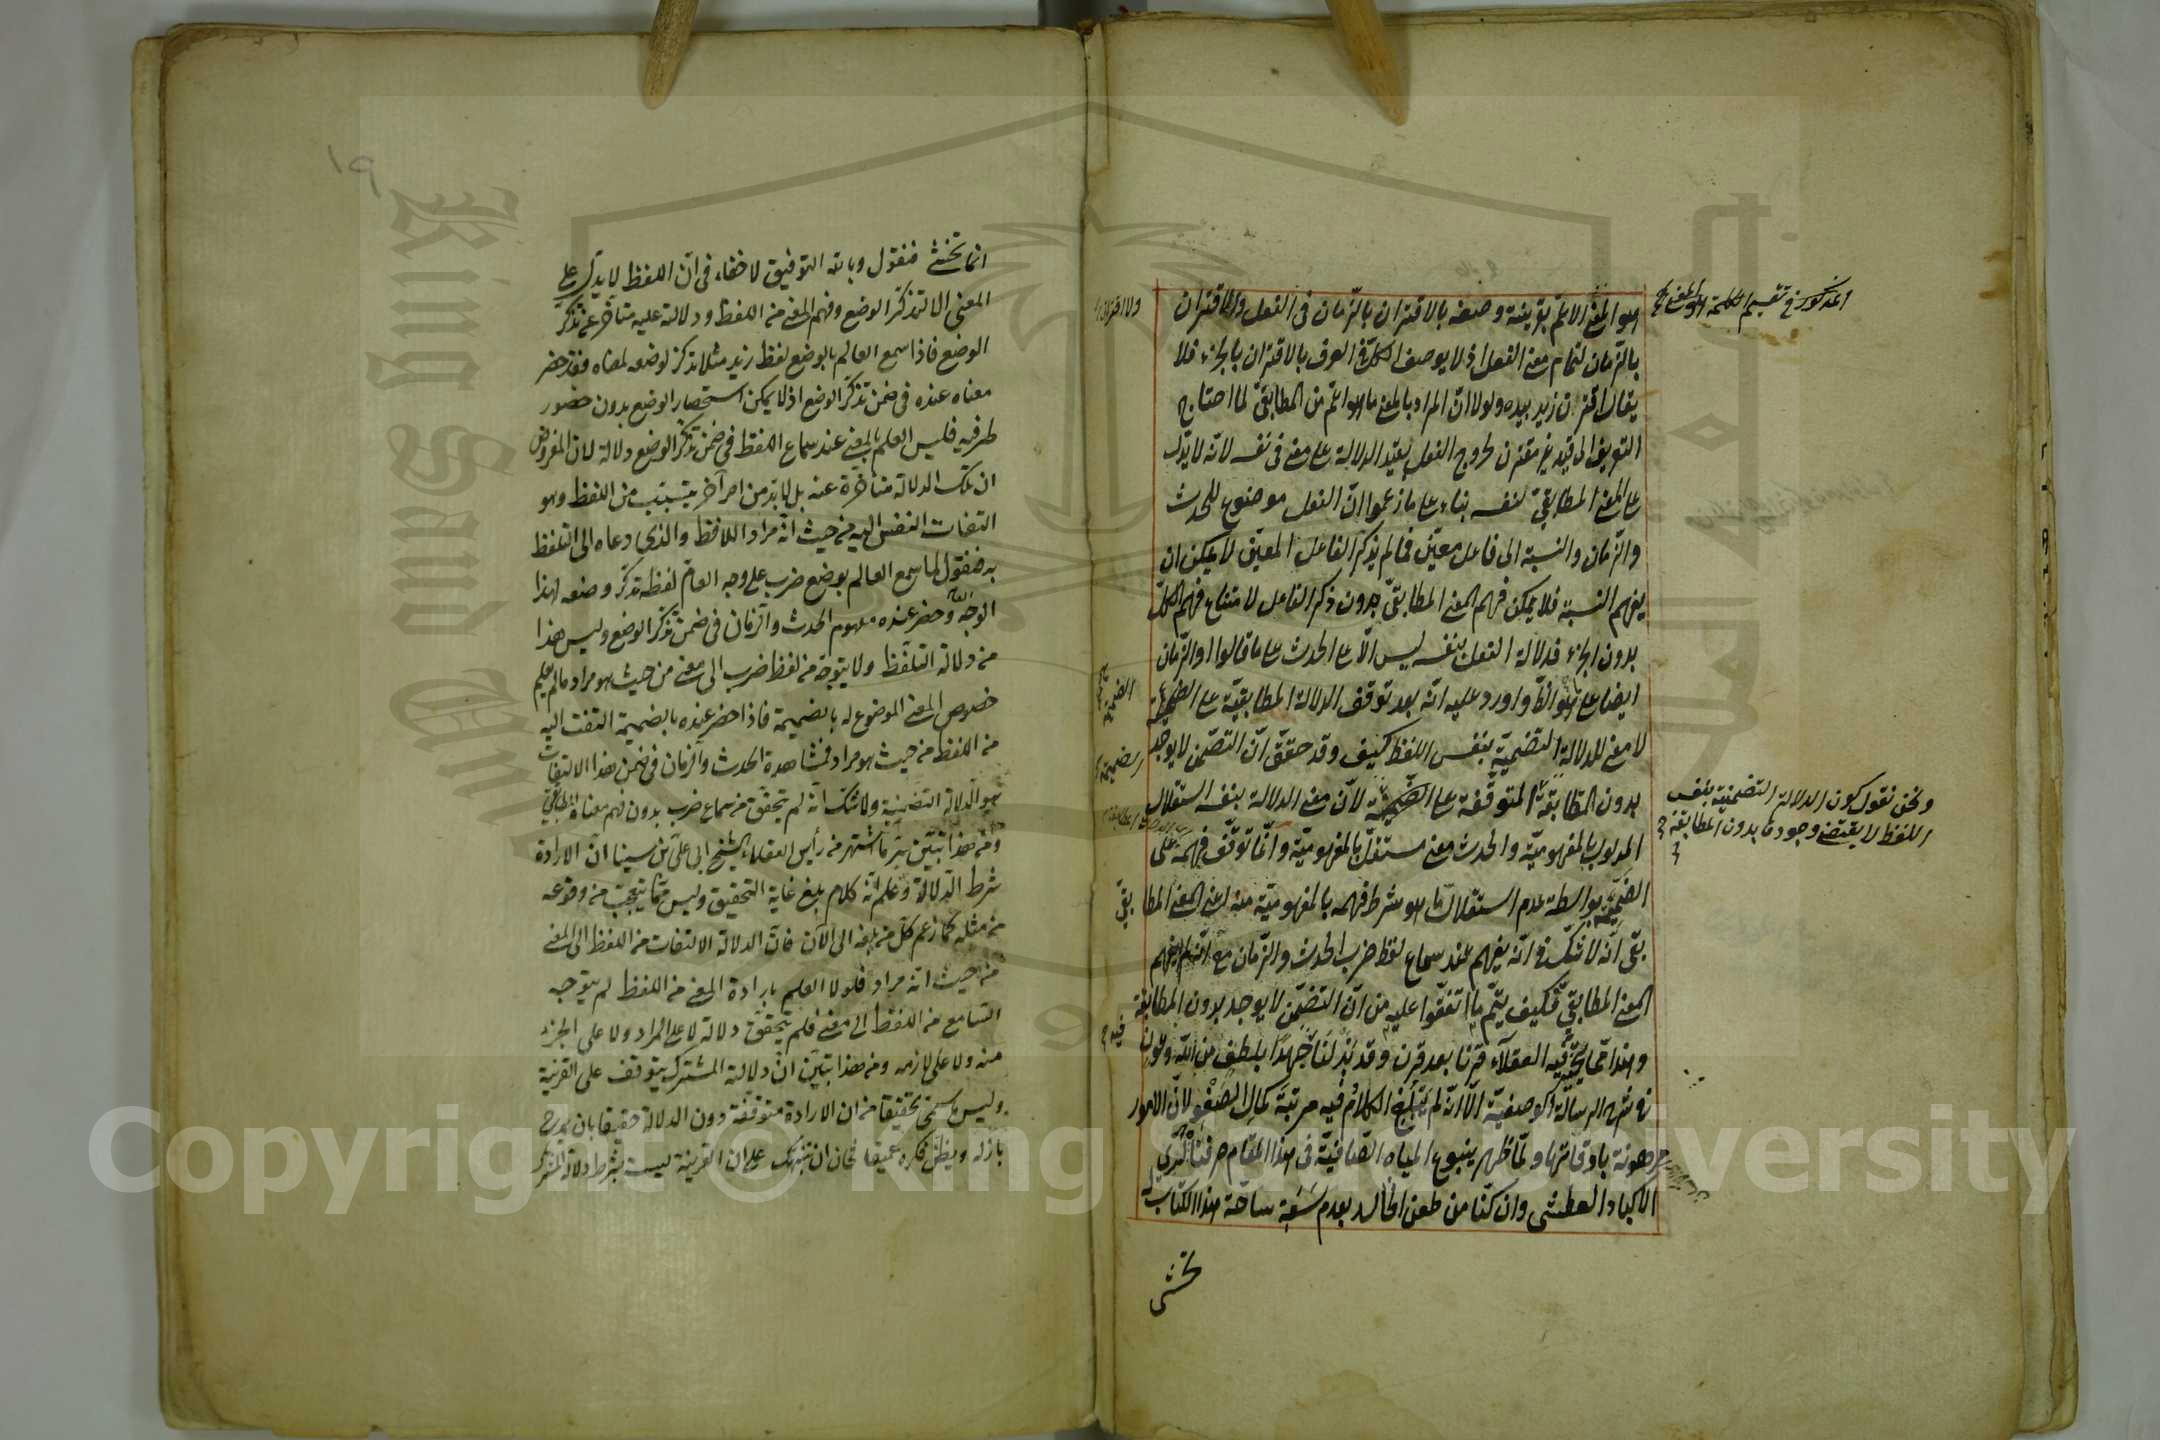 هو المعنى الاعم بقرينة وصفه بالاقتران بالزمان فى الفعل والاقتران
بالزمان لتمام معنى الفعل اذ لا يوصف الكل فى العرف بالاقتران بالجزء فلا
يقال اقترن زيد بيده ولولا ان المراد بالمعنى ما هو اعم من المطابقى لما احتاج
التعريف الى قيد غير مقترن لخروج الفعل بقيد الدلالة على معنى فى نفسه لانه لا يدل
على المعنى المطابقى لنفسه بناء على ما زعموا ان الفعل موضوع للحدث
والزمان والنسبة الى فاعل معين فما لم يذكر الفاعل المعين لا يمكن ان
يفهم النسبة فلا يمكن فهم المعنى المطابقى بدون ذكر الفاعل لامتناع فهم الكل
بدون الجزء فدلالة الفعل بنفسه ليس الا على الحدث على ما قالوا او الزمان
ايضا على واورد عليه انه بعد توقف الدلالة المطابقية على الضميمة
لا معنى للدلالة التضمنية بنفس اللفظ كيف وقد حقق ان التضمن لا يوجد
بدون المطابقة المتوقفة على الضميمة لان معنى الدلالة بنفسه استقلال
المدلول بالمفهومية والحدث معنى مستقل بالمفهومية وانما توقف فهمه على
الضميمة بواسطة عدم استقلال ما هو شرط فهمه بالمفهومية منه اعنى المعنى المطابقى
بقى انه لا شك فى انه يفهم عند سماع لفظ ضرب الحدث والزمان مع انه لم يفهم
المعنى المطابقى فكيف يتم ما اتفقوا عليه من ان التضمن لا يوجد بدون المطابقة
وهذا مما تحير فيه العقلاء قرنا بعد قرن وقد بذلنا جهدا بلطف من الله وعون
فى شرح الرسالة الوضعية الا انه لم يبلغ الكلام فيه مرتبة كمال الصفو لان الامور
مرهونة باوقاتها ولما ظهر ينبوع المياه الصافية فى هذا المقام صرفنا لرى
الاكباد العطشى وان كنا من طعن الخالد بعدم سعة ساحة هذا الكتاب
نخشى
المذكور فى تقسيم الكلمة
ونحن نقول كون الدلالة التضمنية بنفس
اللفظ لا يقتضى وجودها بدون المطابقة
١٩
انما نخشى فنقول وبالله التوفيق لا خفاء فى ان اللفظ لا يدل على
المعنى الا لتذكر الوضع وفهم المعنى من اللفظ ودلالته عليه متأخر عن تذكر
الوضع فاذا سمع العالم بالوضع لفظ زيد مثلا تذكر لوضعه لمعناه فقد حضر
معناه عنده فى ضمن تذكر الوضع اذ لا يمكن استحضار الوضع بدون حضور
طرفيه فليس العلم بالمعنى عند سماع اللفظ فى ضمن تذكر الوضع دلالة لان المفروض
ان تلك الدلالة متأخرة عنه بل لا بد من امر آخر يتسبب من اللفظ وهو
التفات النفس اليه من حيث انه مراد اللافظ والذى دعاه الى التلفظ
به فنقول لما سمع العالم بوضع ضرب على وجه العام لفظه تذكر وضعه لهذا
الوجه وحضر عنده مفهوم الحدث والزمان فى ضمن تذكر الوضع وليس هذا
من دلالة التلفظ ولا يتوجه من لفظ ضرب الى معنى من حيث هو مراد ما لم يعلم
خصوص المعنى الموضوع له بالضميمة فاذا حضر عنده بالضميمة التفت اليه
من اللفظ من حيث هو مراد فمشاهدة الحدث والزمان فى ضمن هذا الالتفات
هو الدلالة التضمنية ولا شك انه لم يتحقق من سماع ضرب بدون فهم معناه المطابقى
ومن هذا تبين سر ما اشتهر من رأس العقلاء الشيخ ابى على بن سينا ان الارادة
شرط الدلالة وعلم انه كلام بلغ غاية التحقيق وليس مما يتعجب من وقوعه
من مثله كما زعم كل من بلغه الى الآن فان الدلالة الالتفات من اللفظ الى المعنى
من حيث انه مراد فلولا العلم بارادة المعنى من اللفظ لم يتوجه
السامع من اللفظ الى معنى فلم يتحقق دلالة لا على المراد ولا على الجزء
منه ولا على لازمه ومن هذا تبين ان دلالة المشترك يتوقف على القرينة
وليس تحقيقا من ان الارادة متوقفة دون الدلالة حقيقا بان
بازله ويظن فكره عميقا فحان ان ننبهك على ان القرينة ليست بشرط دلالة المشترك